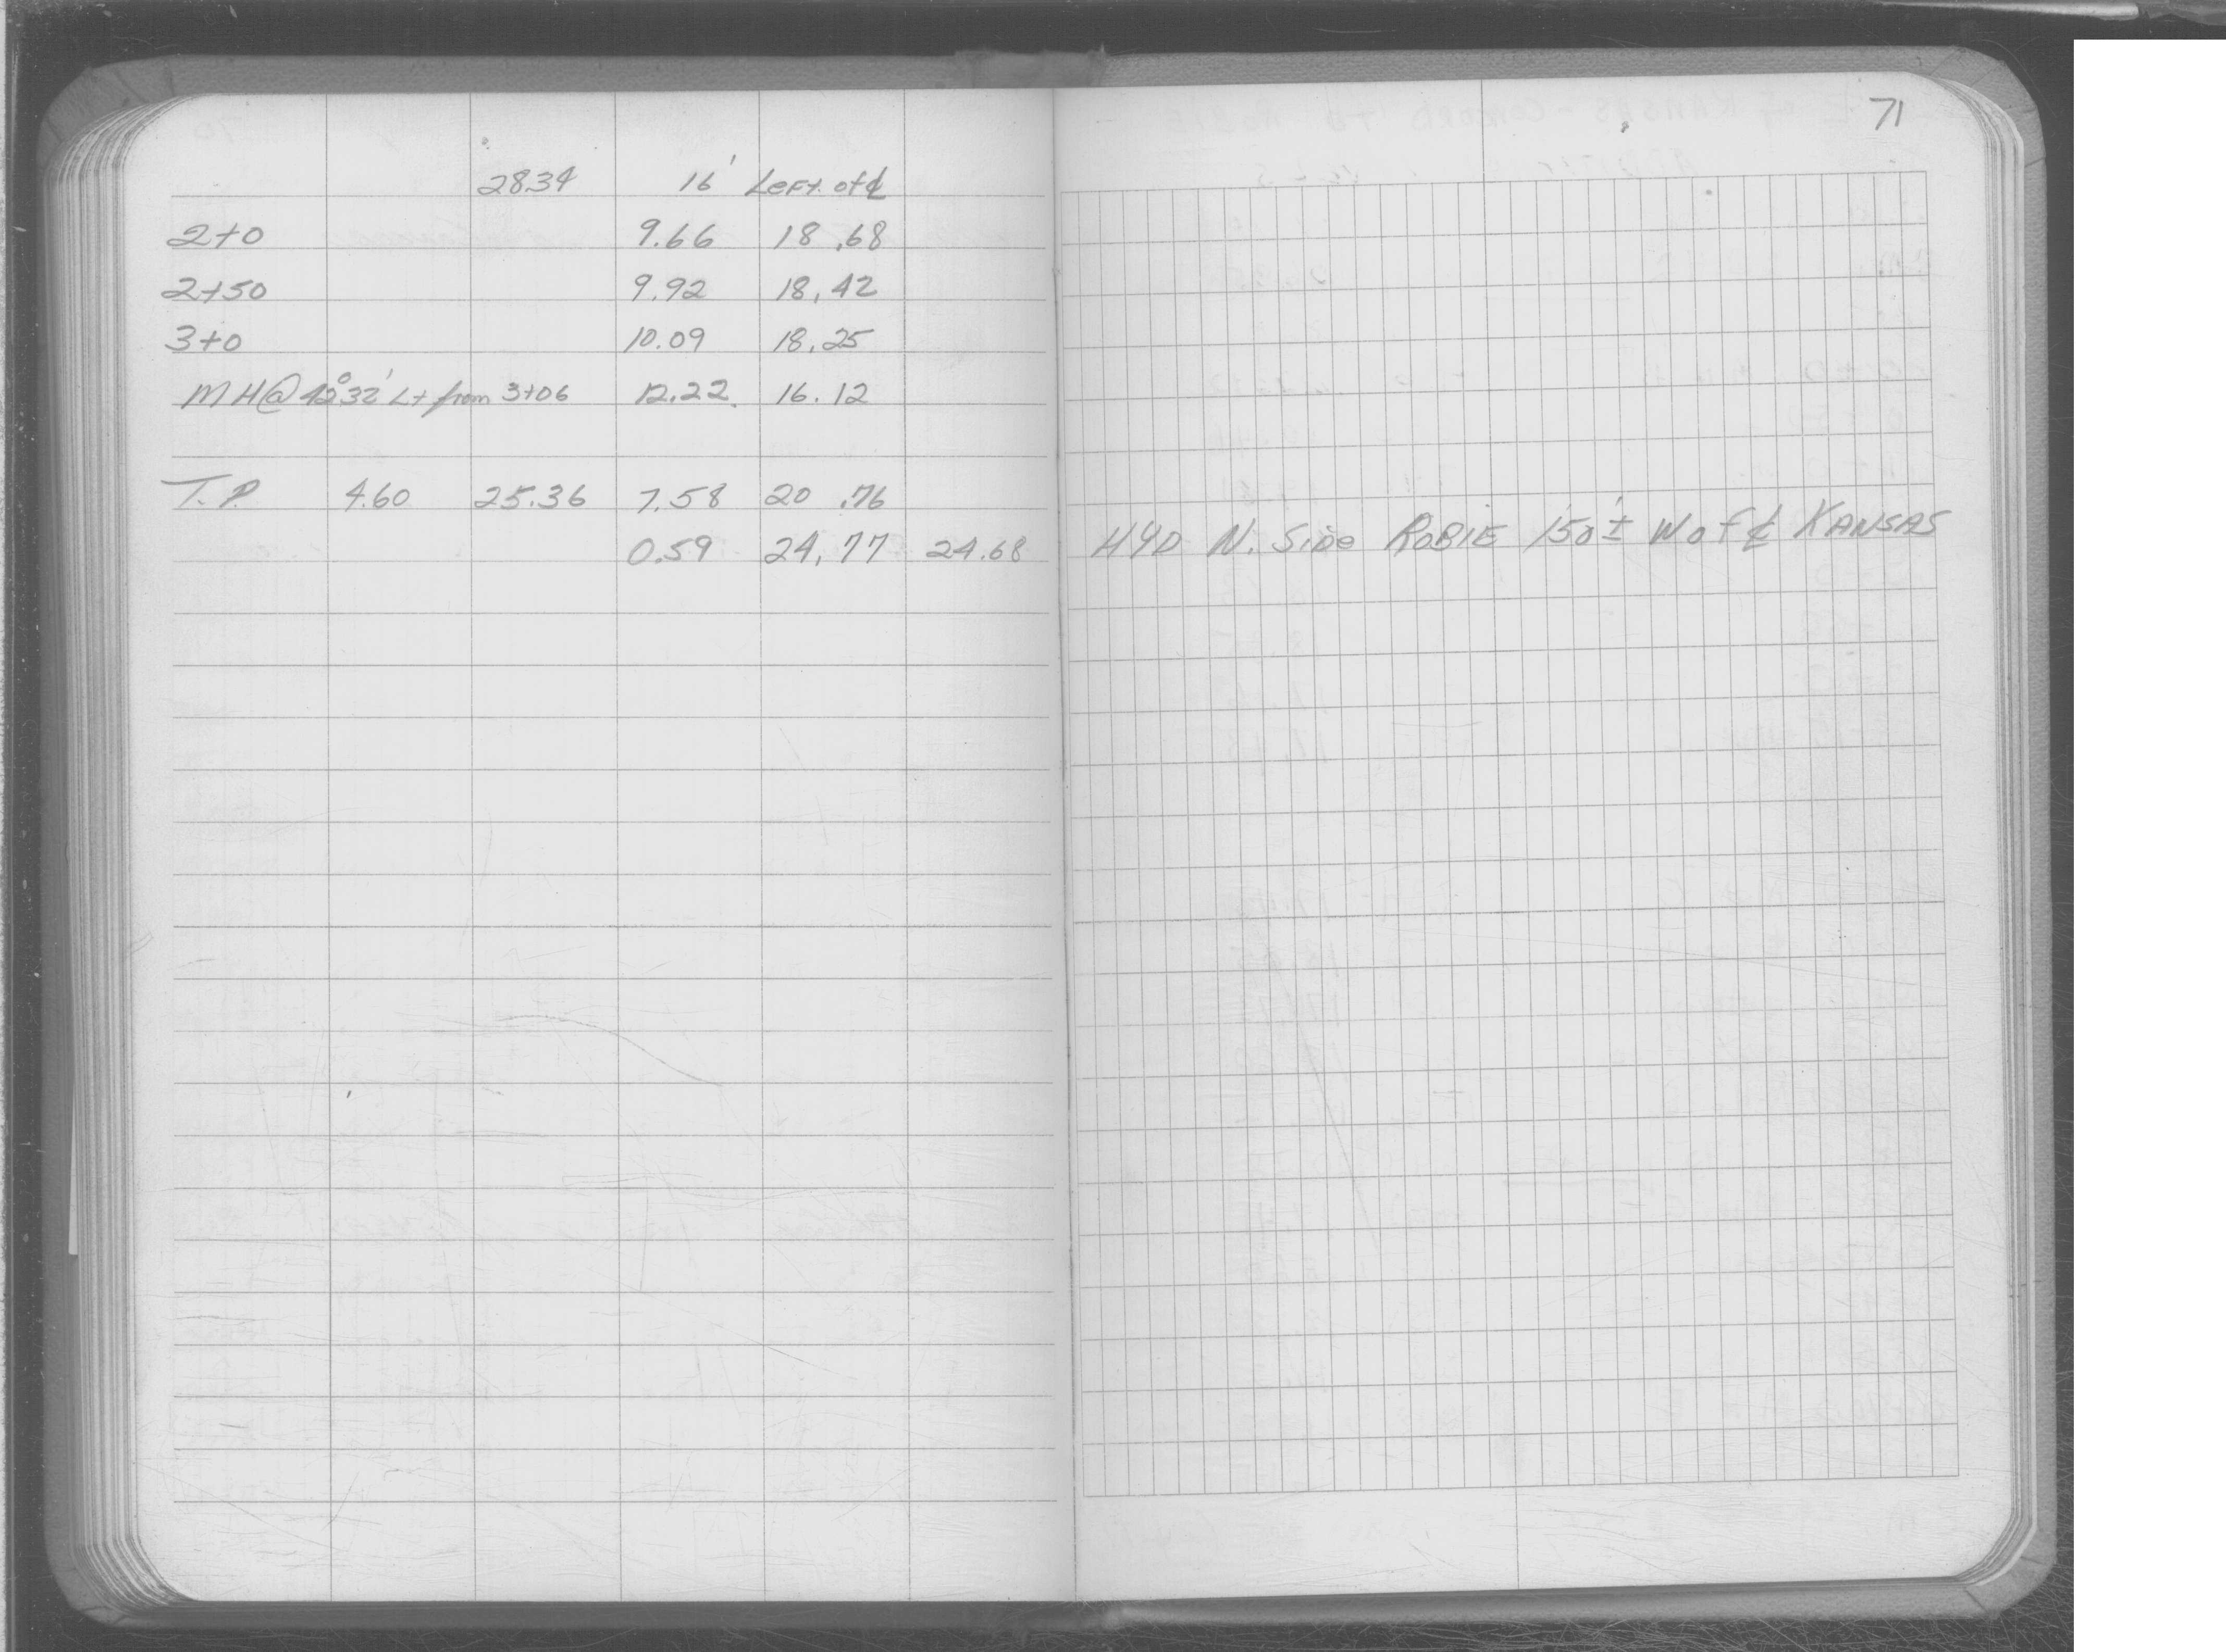 71
28.34 16' Left of ℄
2+0 9.66 18.68
2+50 9.92 18.42
3+0 10.09 18.25
MH @ 42°32' Lt from 3+06 12.22 16.12
T.P. 4.60 25.36 7.58 20.76
0.59 24.77 24.68 HYD N. Side ROBIE 150'± W of ℄ KANSAS